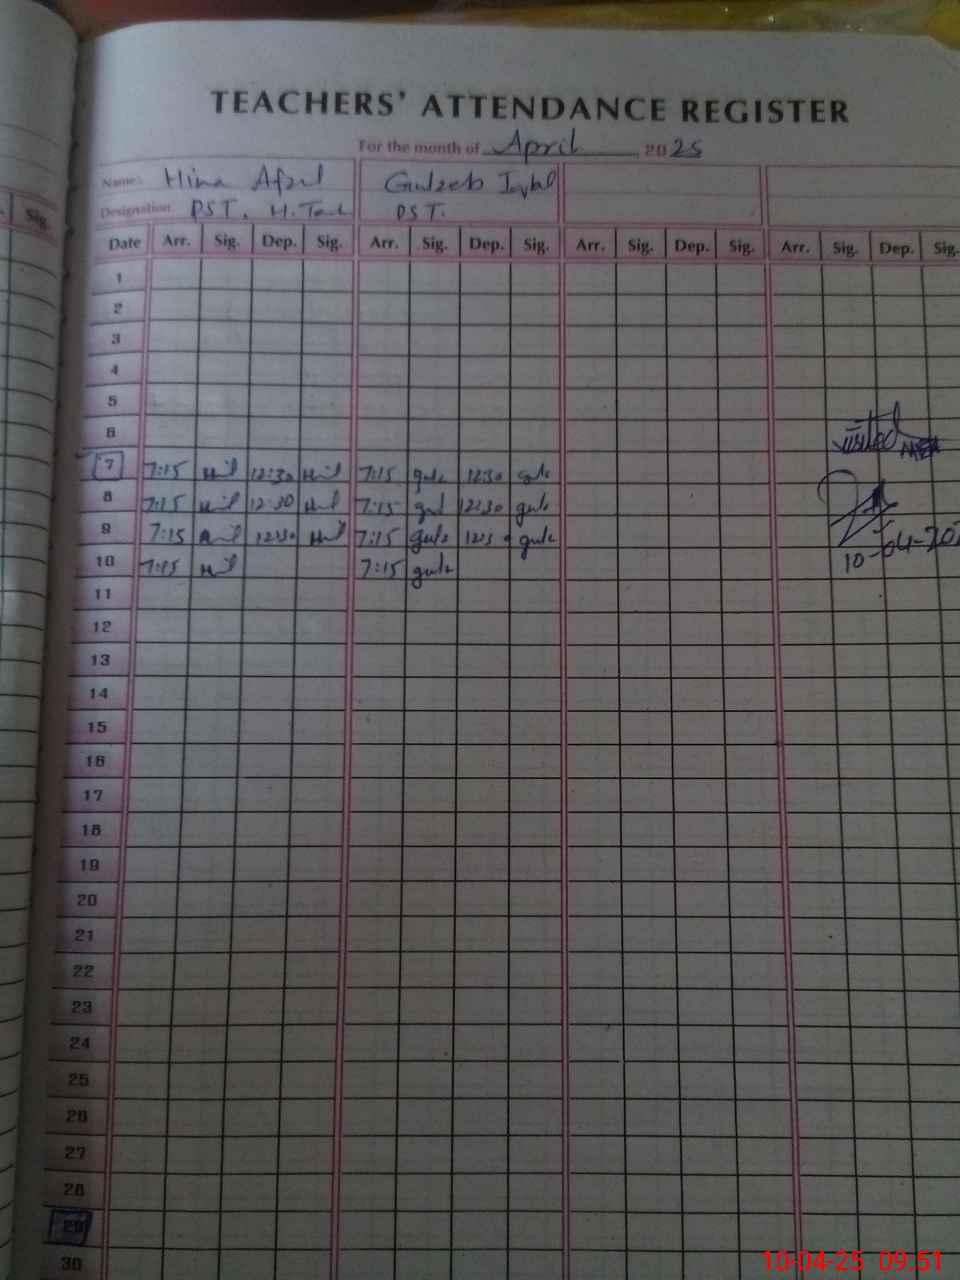 TEACHERS' ATTENDANCE REGISTER
For the month of April 2025
Name: Hina Afzal Gulzeb Iqbal
Designation PST. H. Teach PST.
Sig.
Date Arr. Sig. Dep. Sig. Arr. Sig. Dep. Sig. Arr. Sig. Dep. Sig. Arr. Sig. Dep. Sig.
1
2
3
4
5
6
visited MEA
7 7:15 12:30 7:15 gulz 12:30 gulz
8 7:15 12:30 7:15 gul 12:30 gulz
9 7:15 12:30 7:15 gulz 12:30 gulz
10 7:15 7:15 gulz
10-04-202
11
12
13
14
15
16
17
18
19
20
21
22
23
24
25
26
27
28
29
30
10-04-25 09.51